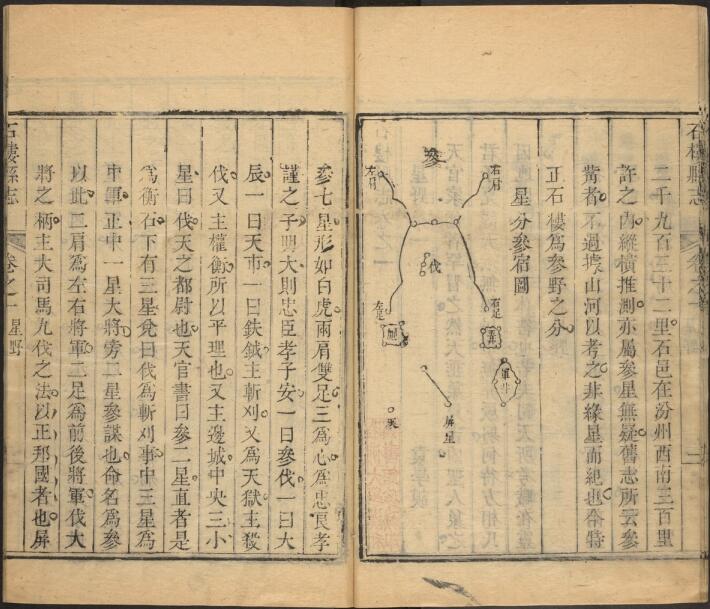 二千九百三十二里石邑在汾州西南三百里
許之内縱橫推測亦屬參星無疑舊志所云參
觜者不過㨿山河以考之非緣星而紀也合特
正石樓爲參野之分
星分參宿圖
參
右肩
左肩
伐
右足
左足
軍井
屏星
石樓縣志
卷之一
參七星形如白虎兩肩雙足三爲心爲忠良孝
謹之子明大則忠臣孝子安一曰參伐一曰大
辰一曰天市一曰鈇鉞主斬刈又爲天獄主殺
伐又主權衡所以平理也又主邊城中央三小
星曰伐天之都尉也天官書曰參二星直者是
爲衡石下有三星兌曰伐爲斬刈事中三星爲
中軍正中一星大將旁二星參謀也命名爲參
以此二肩爲左右將軍二足爲前後將軍伐大
將之柄主大司馬九伐之法以正邦國者也屏
石樓縣志
卷之一 星野